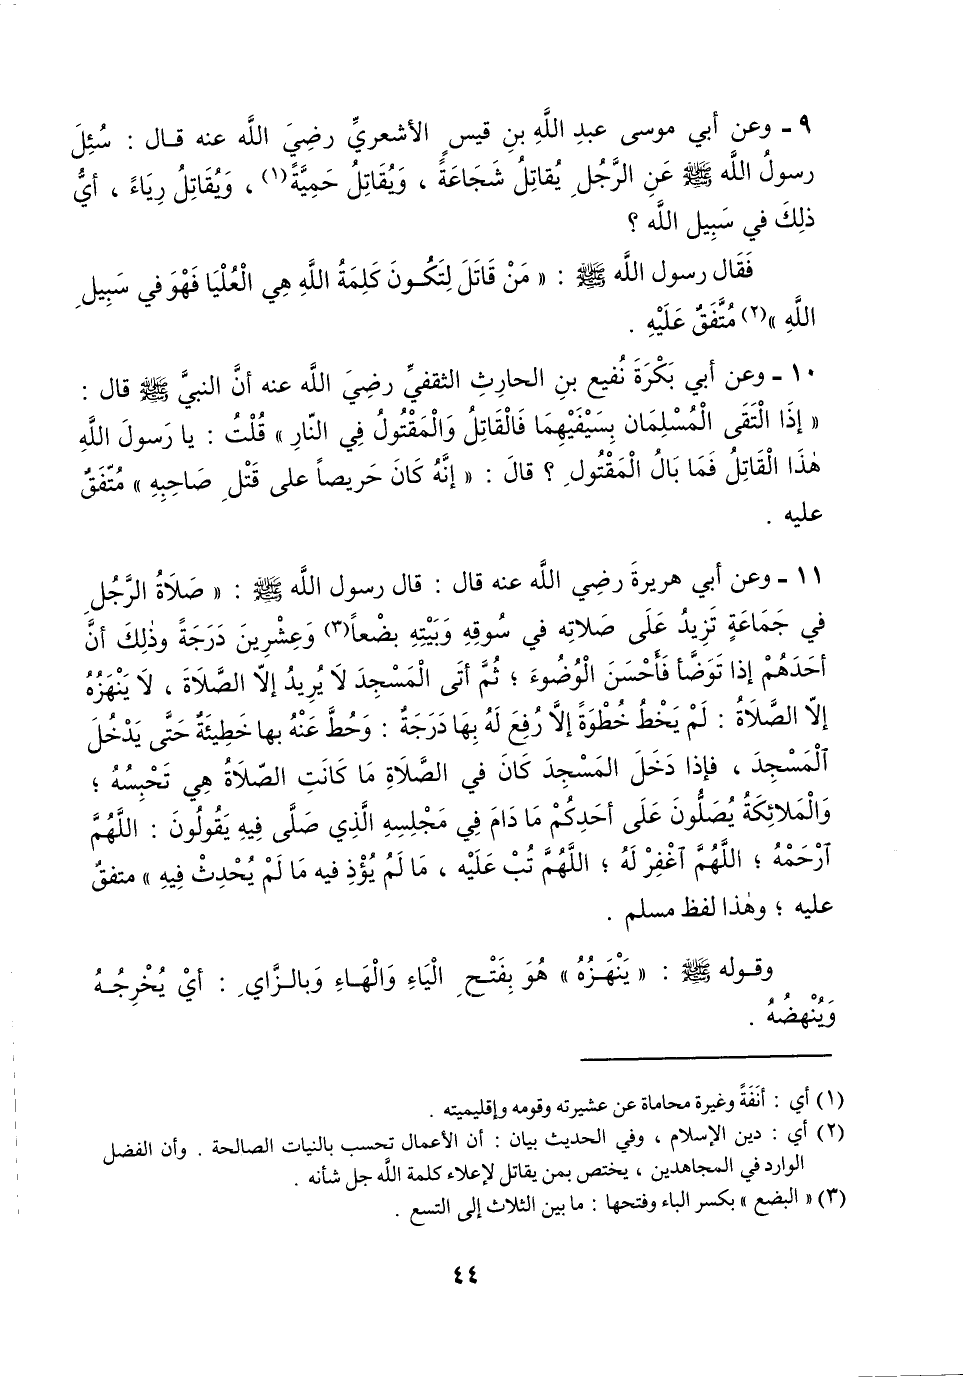 ٩ ـ وعن أبي موسى عبدِ اللَّهِ بنِ قيسٍ الأشعريِّ رضِيَ اللَّه عنه قـال : سُئِلَ
رسولُ اللَّه ﷺ عَنِ الرَّجُلِ يُقاتِلُ شَجَاعَةً ، وَيُقَاتِلُ حَمِيَّةً(١) ، وَيُقَاتِلُ رِيَاءً ، أيُّ
ذلِكَ في سَبِيلِ اللَّه ؟
فَقَال رسول اللَّه ﷺ : « مَنْ قَاتَلَ لِتَكُـونَ كَلِمَةُ اللَّهِ هِي الْعُلْيَا فَهْوَ في سَبِيلِ
اللَّهِ »(٢) مُتَّفَقٌ عَلَيْهِ .
١٠ ـ وعن أبي بَكْرَةَ نُفَيعِ بنِ الحارِثِ الثقفيِّ رضِيَ اللَّه عنه أنَّ النبيَّ ﷺ قال :
« إذَا الْتَقَى الْمُسْلِمَانِ بِسَيْفَيْهِمَا فَالْقَاتِلُ وَالْمَقْتُولُ فِي النّارِ » قُلْتُ : يا رَسولَ اللَّهِ
هٰذَا الْقَاتِلُ فَمَا بَالُ الْمَقْتُولِ ؟ قالَ : « إنَّهُ كَانَ حَرِيصاً على قَتْلِ صَاحِبِهِ » مُتّفَقٌ
عليه .
١١ ـ وعن أبي هريرةَ رضِي اللَّه عنه قال : قال رسول اللَّه ﷺ : « صَلَاةُ الرَّجُلِ
في جَمَاعَةٍ تَزِيدُ عَلَى صَلاتِه في سُوقِهِ وَبَيْتِهِ بضْعاً(٣) وَعِشْرِينَ دَرَجَةً وذٰلِكَ أنَّ
أحَدَهُمْ إذا تَوَضَّأ فَأحْسَنَ الْوُضُوءَ ؛ ثُمَّ أتَى الْمَسْجِدَ لَا يُرِيدُ إلاّ الصَّلَاةَ ، لَا يَنْهَزُهُ
إلاّ الصَّلَاةُ : لَمْ يَخْطُ خُطْوَةً إلاَّ رُفِعَ لَهُ بِهَا دَرَجَةٌ : وَحُطَّ عَنْهُ بها خَطِيئَةٌ حَتَّى يَدْخُلَ
ٱلْمَسْجِدَ ، فإذا دَخَلَ المَسْجِدَ كَانَ في الصَّلَاةِ مَا كَانَتِ الصّلَاةُ هِي تَحْبِسُهُ ؛
وَالْمَلائِكَةُ يُصَلُّونَ عَلَى أحَدِكُمْ مَا دَامَ فِي مَجْلِسِهِ الَّذِي صَلَّى فِيهِ يَقُولُونَ : اللَّهُمَّ
ٱرْحَمْهُ ؛ اللَّهُمَّ ٱغْفِرْ لَهُ ؛ اللَّهُمَّ تُبْ عَلَيْهِ ، مَا لَمْ يُؤْذِ فيه مَا لَمْ يُحْدِثْ فِيهِ » متفقٌ
عليه ؛ وهٰذا لفظ مسلم .
وقـوله ﷺ : « يَنْهَـزُهُ » هُوَ بِفَتْـحِ الْيَاءِ وَالْهَـاءِ وَبالـزَّايِ : أيْ يُخْرِجُـهُ
وَيُنْهِضُهُ .
(١) أي : أنَفَةً وغيرة محاماة عن عشيرته وقومه وإقليميته .
(٢) أي : دين الإسلام ، وفي الحديث بيان : أن الأعمال تحسب بالنيات الصالحة . وأن الفضل
الوارد في المجاهدين ، يختص بمن يقاتل لإعلاء كلمة اللَّه جل شأنه .
(٣) « البضع » بكسر الباء وفتحها : ما بين الثلاث إلى التسع .
٤٤